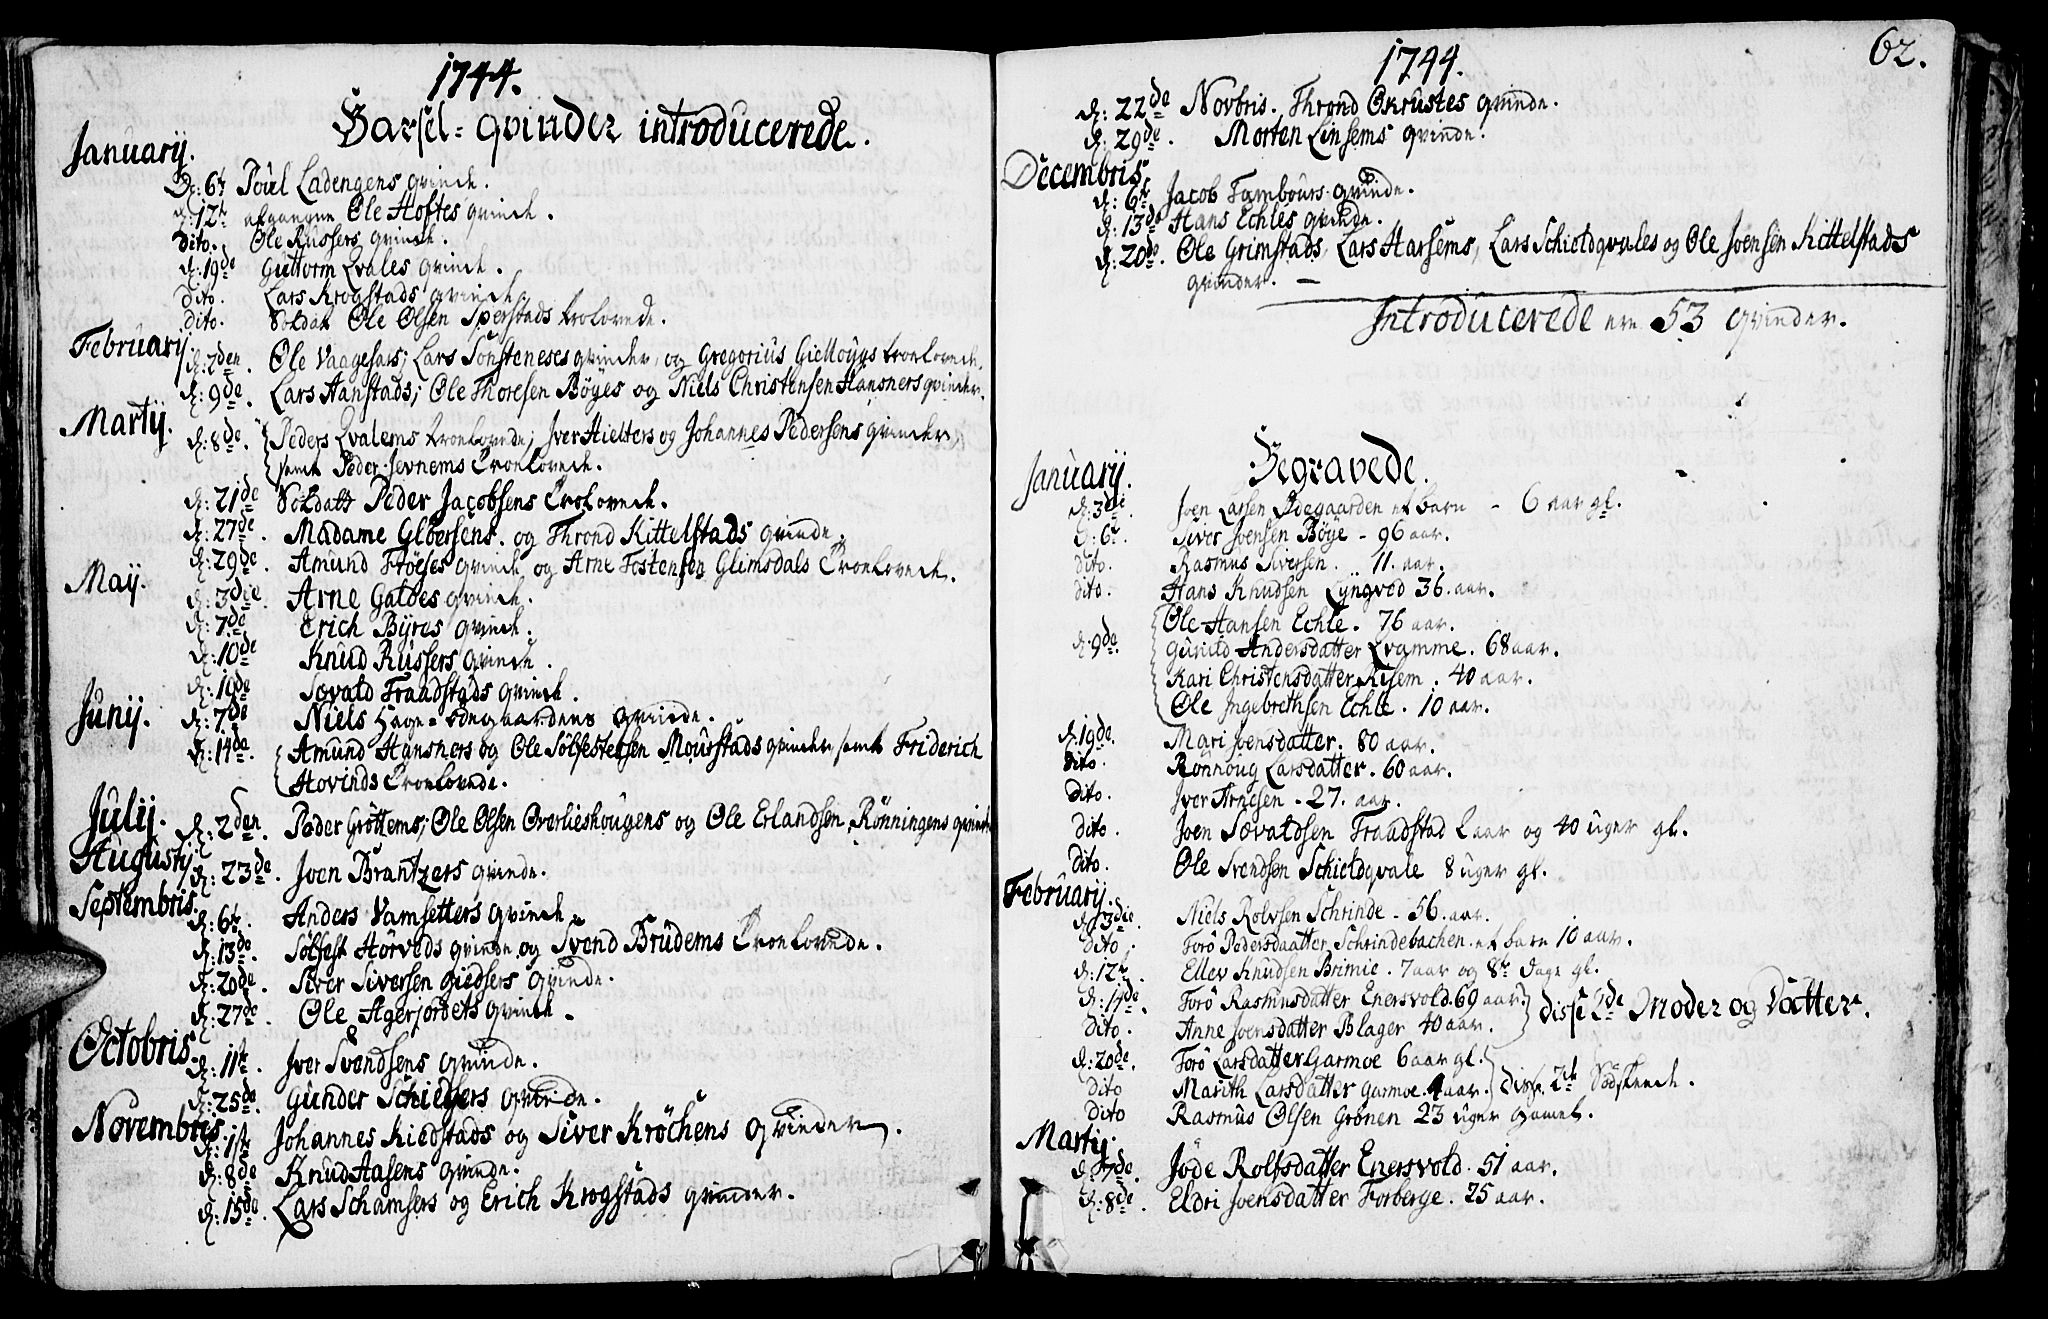 1744.
Barsel-qvinder introducerede.
Januarij.
D: 6te Poul Ladengens qvinde.
d: 12te afgangne Ole Hoftes qvinde.
dito. Ole Russers qvinde.
d: 19de Guttorm Qvales qvinde.
dito. Lars Krogstads qvinde.
dito. Soldat Ole Olsen Sperstads trolovede.
Februarij
d: 2den. Ole Vaagesars, Lars Sönsteneses qvinder, og Gregorius Giellöyys troelovede.
d: 9de. Lars Hanstads, Ole Thoresen Böyes og Niels Christensen Hansners qvinder.
Martij.
d: 8de. Peders Qvalems troelovede, Iver Hielters og Johannes Pedersens qvinder,
samt Peder Jevnems troelovede.
d: 21de Soldatt Peder Jacobsens trolovede.
d: 27de. Madame Glöersens. og Thrond Kittelstads qvinde.
d: 29de. Amund Fröeses qvinde og Arne Tostensen Glimsdals troelovede.
Maij.
d: 3die. Arne Galdes qvinde.
d: 7de Erich Byres qvinde.
d: 10de Knud Russers qvinde.
d: 19de Sævald Fraadstads qvinde.
Junij.
d: 7de Niels Hage-ödegaardens qvinde.
d: 14de. Amund Hansners og Ole Sölfestersen Mourstads qvinder, samt Friderich
Hovinds troelovede.
Julij.
d: 2den. Peder Grottems, Ole Olsen Overlieshougens og Ole Erlandsen Rönningens qvinder
Augustij
d: 23de. Joen Brantzers qvinde.
Septembris.
d: 6te. Anders Vamsetters qvinde.
d: 13de Sölfest Hörveds qvinde og Svend Brudems troelovede.
d: 20de. Siver Siversen Giedsers qvinde.
d: 27de. Ole Agerjordets qvinde.
Octobris.
d: 11te. Iver Svendsens qvinde.
d: 25de. Gunder Schiellers qvinde.
Novembris.
d: 1ste Johannes Kiedstads og Siver Kröckens qvinder.
d: 8de Knud Aasens qvinde.
d: 15de. Lars Schamsers og Erich Krogstads qvinder.
1744. 62.
d: 22de Novbris. Thrond Økrustes qvinde.
d: 29de. Morten Linsems qvinde.
Decembris
d: 6te Jacob Tambours qvinde.
d: 13de Hans Echles qvinde.
d: 20de. Ole Grimstads, Lars Harsems, Lars Schieldqvales og Ole Joensen Kittelstads
qvinder. –
Introducerede ere 53 qvinder.
Begravede.
Januarij.
d: 3die. Joen Larsen Ødegaarden et barn – 6 aar gl.
d: 6te. Siver Joensen Böye – 96 aar.
dito. Rasmus Siversen. 11. aar.
dito. Hans Knudsen Lyngved 36. aar.
d: 9de. Ole Hansen Echle. 76 aar.
Gunild Andersdatter Qvamme. 68 aar.
Kari Christensdatter Risem. 40 aar.
Ole Ingebrethsen Echle. 10 aar.
d: 19de. Mari Joensdatter. 80 aar.
dito. Rönnoug Larsdatter. 60 aar.
dito. Iver Arnesen – 27. aar.
dito. Joen Sævaldsen Fraadstad 2 aar og 40 uger gl.
dito. Ole Svendsen Schieldqvale 8 uger gl.
Februarij.
d: 3die. Niels Rolvsen Schrinde – 56. aar.
dito. Torö Pedersdaatter Schrindebachen. et barn 10 aar.
d: 12te. Ellev Knudsen Brimie. 7 aar og 8te dage gl.
d: 14de. Torö Rasmusdatter Enersvold. 69 aar.
dito. Anne Joensdatter Blager 40 aar. disse 2de Moder og Datter.
d: 20de. Torö Larsdatter Garmoe 6 aar gl.
dito Marith Larsdatter Garmoe. 4 aar. disse 2de Södskende.
dito Rasmus Olsen Grönen 23 uger gamel.
Martij.
d: 7de. Jöde Rolfsdatter Enersvold. 51 aar.
d: 8de. Eldri Joensdatter Forberge. 25 aar.